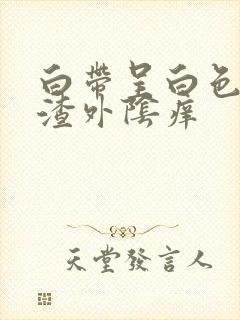 白帶呈白色
渣外陰痒
天堂發言人